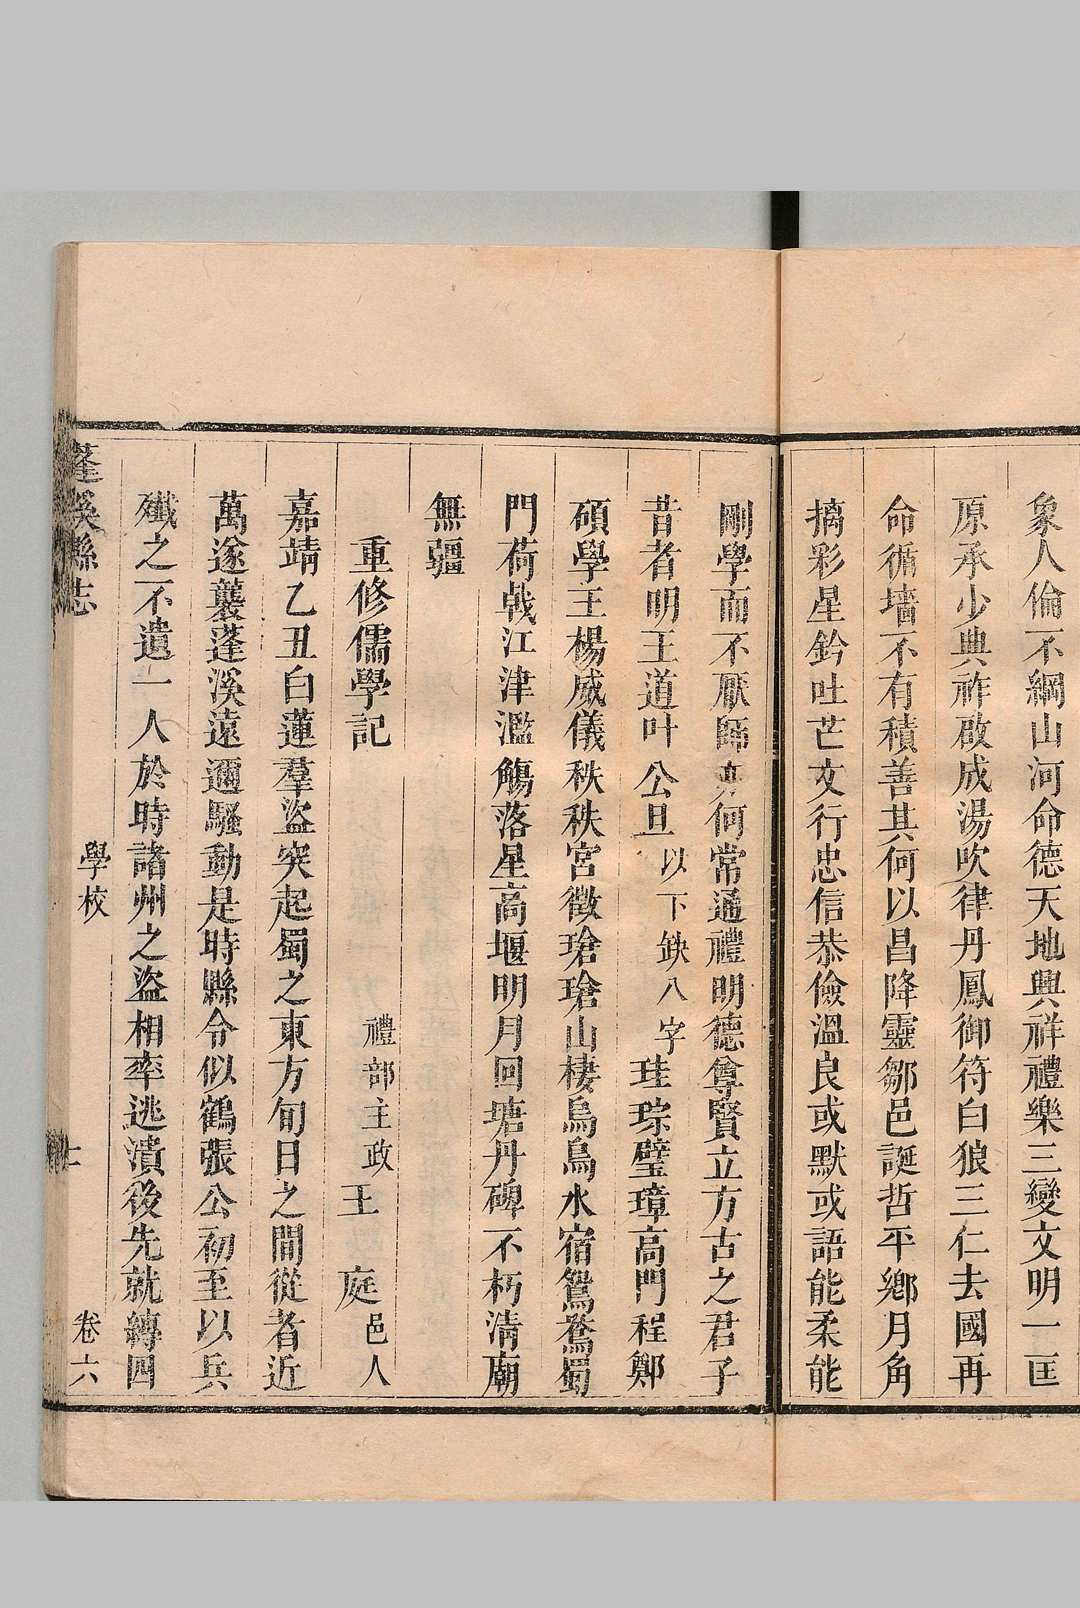 象人倫不綱山河命德天地興祥禮樂三變文明一匡
原承少典祚啟成湯吹律丹鳳御符白狼三仁去國再
命循墻不有積善其何以昌降靈鄒邑誕哲平鄉月角
摛彩星鈐吐芒文行忠信恭儉溫良或默或語能柔能
剛學而不厭歸 何常通禮明德尊賢立方古之君子
昔者明王道叶公旦以下缺八字珪琮璧璋高門程鄭
碩學王楊威儀秩秩宮徵瑲瑲山棲烏烏水宿鴛鴦蜀
門荷戟江津濫觴落星高堰明月回塘丹碑不朽清廟
無疆
重修儒學記 禮部主政王庭邑人
嘉靖乙丑白蓮羣盜突起蜀之東方旬日之間從者近
萬遂襲蓬溪遠邇騷動是時縣令似鶴張公初至以兵
殲之不遺一人於時諸州之盜相率逃潰後先就縛四
蓬溪縣志 學校 七 卷六